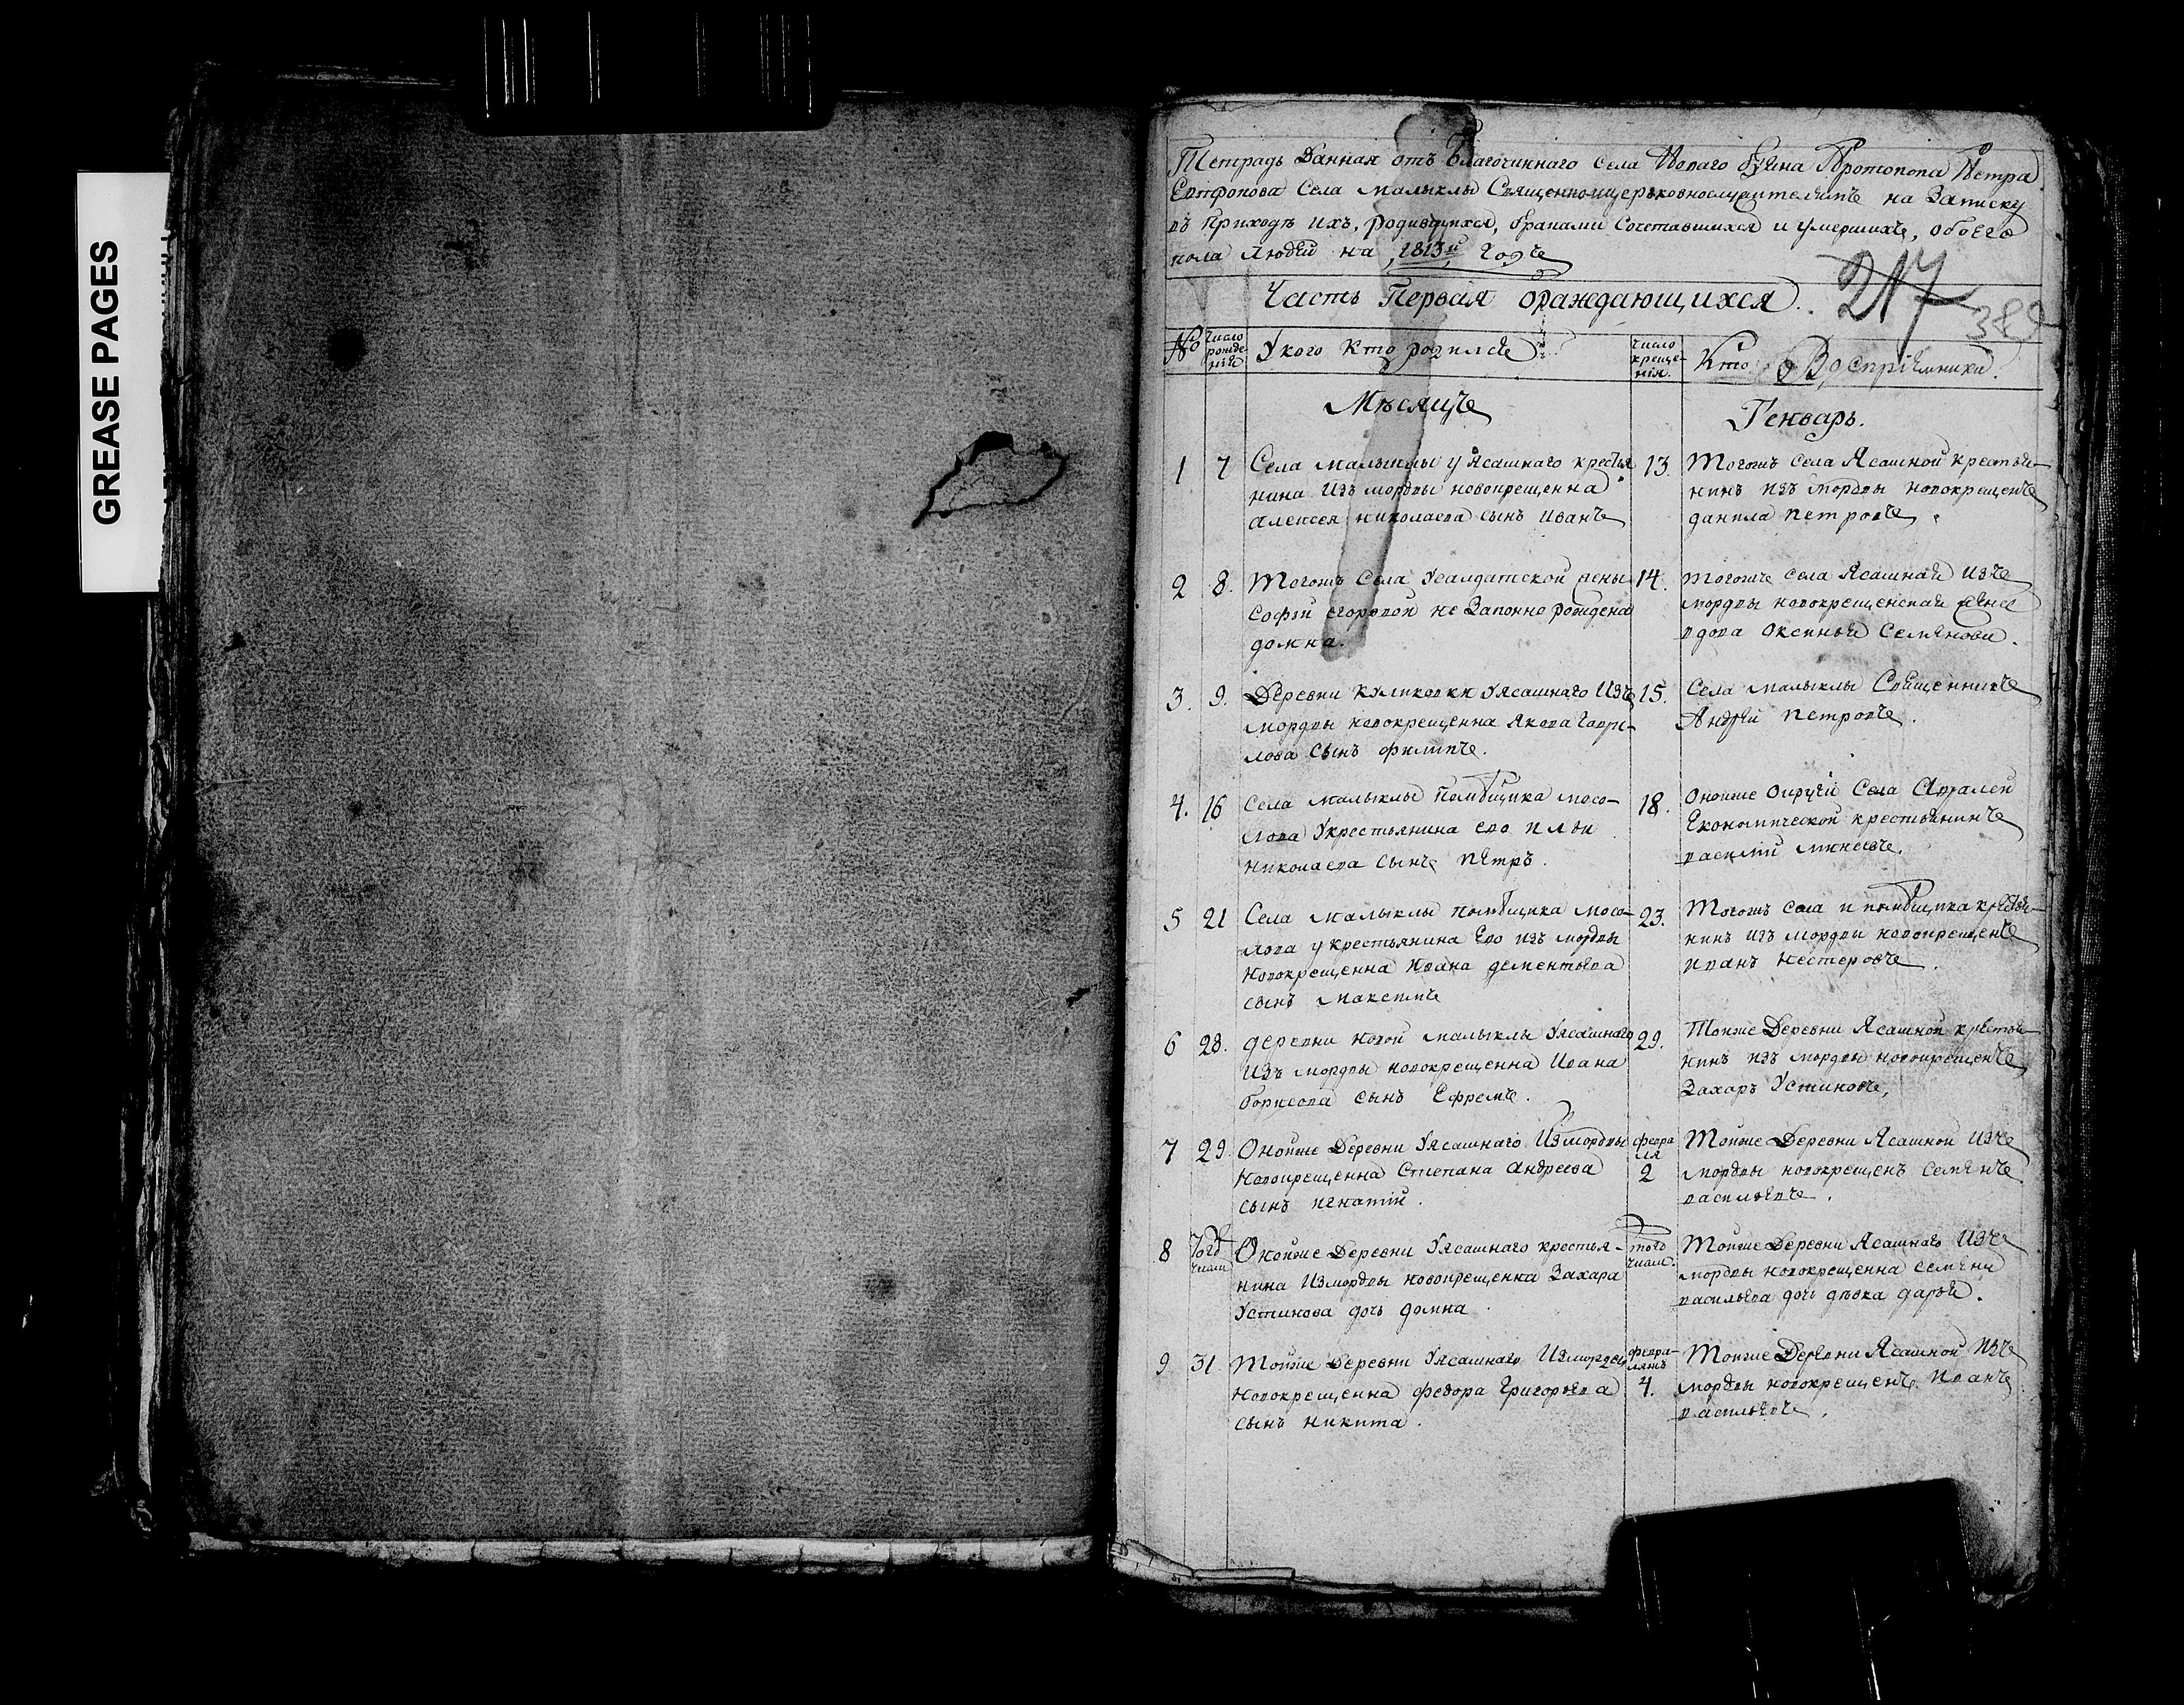 GREASE PAGES
Тетрадь Данная отъ Благочиннаго села Новаго Буяна Протопопа Петра
Евтропова Села Малыклы Священноицерьковнослужителямъ на Записку
въ приходѣ ихъ, родившихся, браками Сочетавшихся и умершихъ, обоего
пола людей на 1813й годъ
Часть Первая ораждающихся.
217
382
№
число рожде-нія
У кого Кто родился
число креще-нія.
Кто Воспріемники.
Мѣсяцъ
Генварь.
1
7
Села малыклы у Ясашнаго крестья
нина Изъ мордвы новокрещенна
алексея николаева сынъ Иванъ
13.
Тогожъ села Ясашной крестья-
нинъ изъ мордвы новокрещенъ
данила петровъ
2
8.
Тогожъ Села Усалдатской жены
софьи егоровой не Законно рождена
домна.
14.
тогожъ села Ясашная изъ
мордвы новокрещенская жена
вдова Оксинья Семенова.
3.
9.
Деревни куликовки Уясашнаго Изъ
мордвы новокрещенна Якова гаври-
лова сынъ филипъ.
15.
Села малыклы Священникъ
Андрей петровъ.
4.
16
Села малыклы помѣщика мосо-
лова Укрестьянина ево ильи
николаева сынъ петръ.
18.
Оноиже Округи Села
Економической крестьянинъ
василий
5
21
Села малыклы помѣщика мосо-
лова у крестьянина Ево изъ мордвы
новокрещенна Ивана дементьева
сынъ максимъ
23.
Тогожъ села и помѣщика крестья-
нинъ изъ мордвы новокрещенъ
иванъ нестеровъ.
6
28.
деревни новой малыклы Уясашнаго
Изъ мордвы новокрещенна Ивана
борисова сынъ Ефремъ.
29.
Тоиже Деревни Ясашной крестья-
нинъ изъ мордвы новокрещенъ
Захаръ Устиновъ,
7
29.
Оноиже Деревни Уясашнаго Измордвы
новокрещенна Степана андреева
сынъ игнатий.
февра
ля
2
Тоиже Деревни Ясашной Изъ
мордвы новокрещенъ семенъ
васильевъ.
8
Того
числа
Оноиже Деревни Уясашнаго крестья-
нина Измордвы новокрещенна Захара
Устинова дочь домна.
того
числа.
Тоиже Деревни Ясашнаго Изъ
мордвы новокрещенна семена
васильева дочь дѣвка дарья.
9
31.
Тоиже Деревни Уясашнаго Измордвы
новокрещенна федора григорьева
сынъ никита.
февра-
ля
4.
Тоиже Деревни Ясашной Изъ
мордвы новокрещенъ Иванъ
васильевъ.